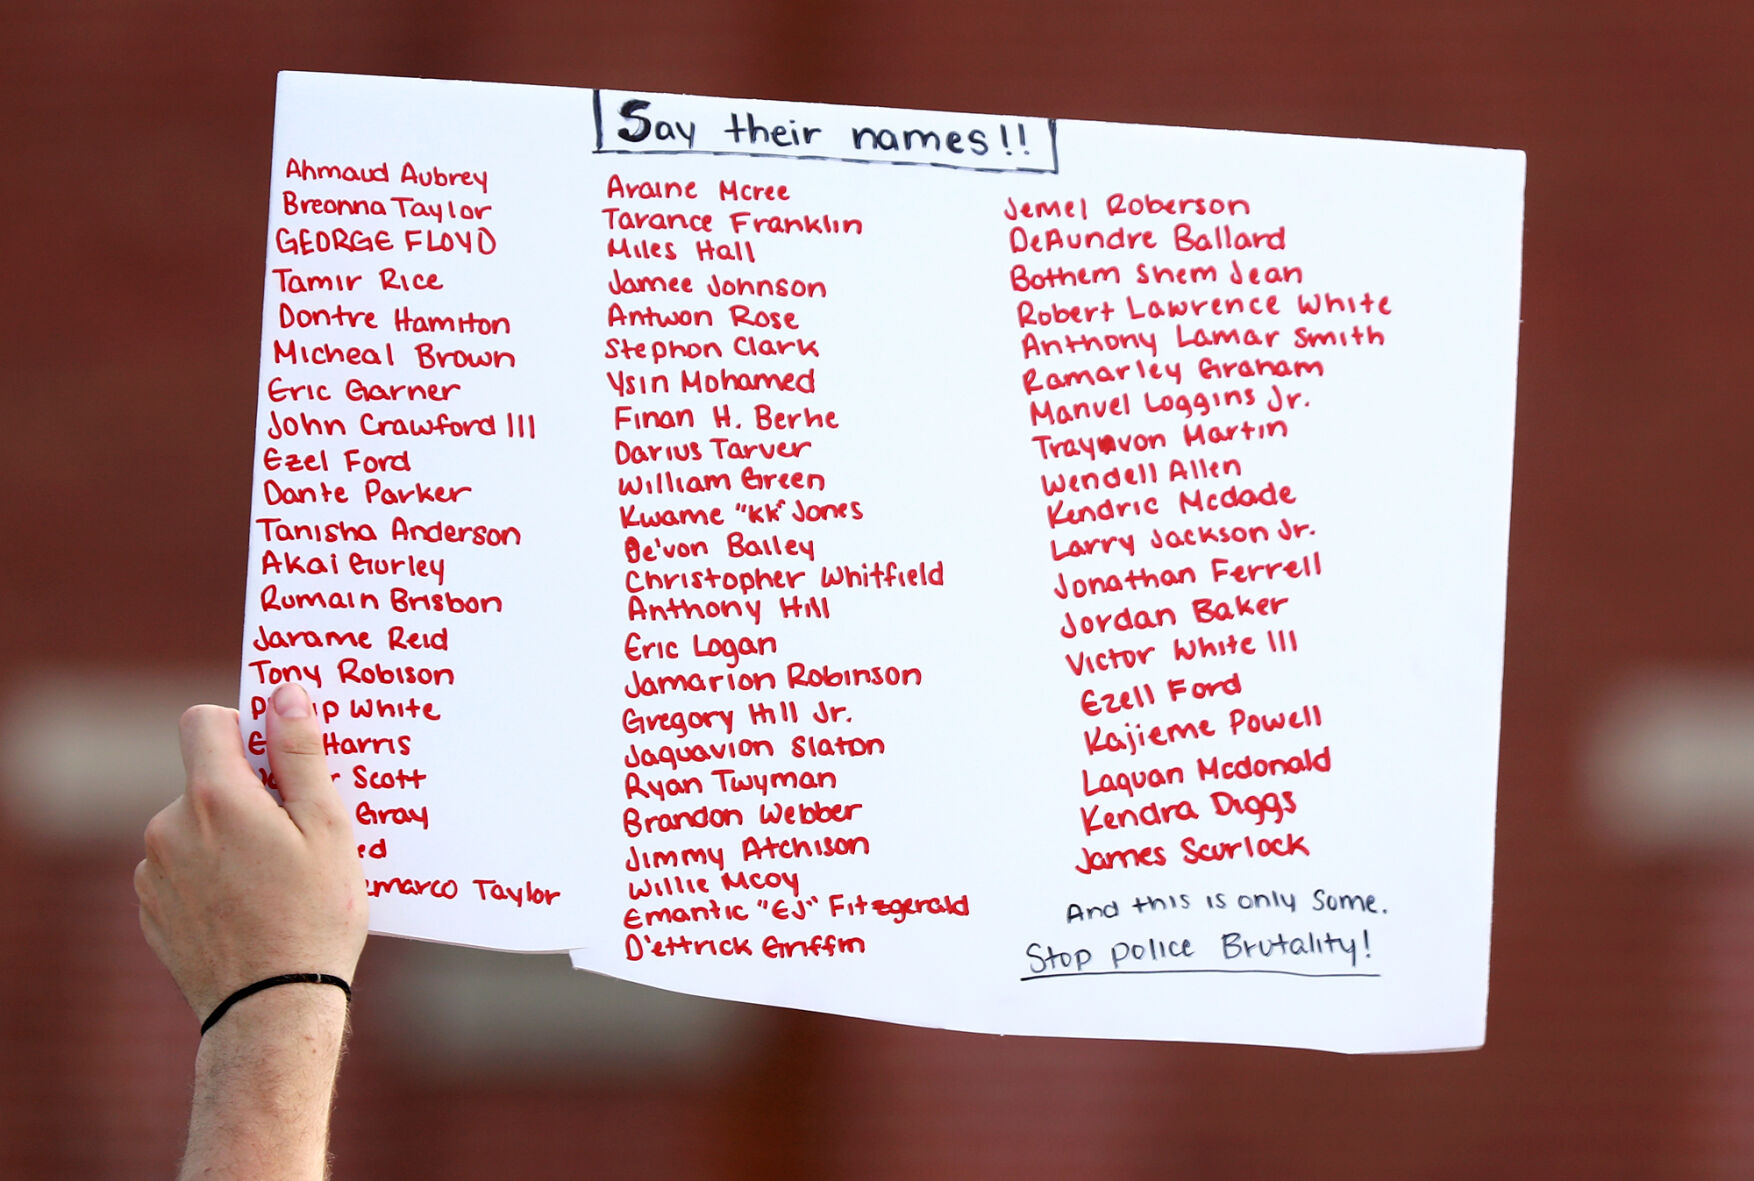 Say their names!!
Ahmaud Aubrey
Breonna Taylor
GEORGE FLOYD
Tamir Rice
Dontre Hamiton
Micheal Brown
Eric Garner
John Crawford III
Ezel Ford
Dante Parker
Tanisha Anderson
Akai Gurley
Rumain Brisbon
Jarame Reid
Tony Robison
White
Harris
Scott
Gray
Taylor
Araine Mcree
Tarance Franklin
Miles Hall
Jamee Johnson
Antwon Rose
Stephon Clark
Ysin Mohamed
Finan H. Berhe
Darius Tarver
William Green
Kwame "KK" Jones
De'von Bailey
Christopher Whitfield
Anthony Hill
Eric Logan
Jamarion Robinson
Gregory Hill Jr.
Jaquavion Slaton
Ryan Twyman
Brandon Webber
Jimmy Atchison
Willie Mcoy
Emantic "EJ" Fitzgerald
D'ettrick Griffin
Jemel Roberson
DeAundre Ballard
Bothem Shem Jean
Robert Lawrence White
Anthony Lamar Smith
Ramarley Graham
Manuel Loggins Jr.
Trayvon Martin
Wendell Allen
Kendric Mcdade
Larry Jackson Jr.
Jonathan Ferrell
Jordan Baker
Victor White III
Ezell Ford
Kajieme Powell
Laquan Mcdonald
Kendra Diggs
James Scurlock
And this is only some.
Stop police Brutality!